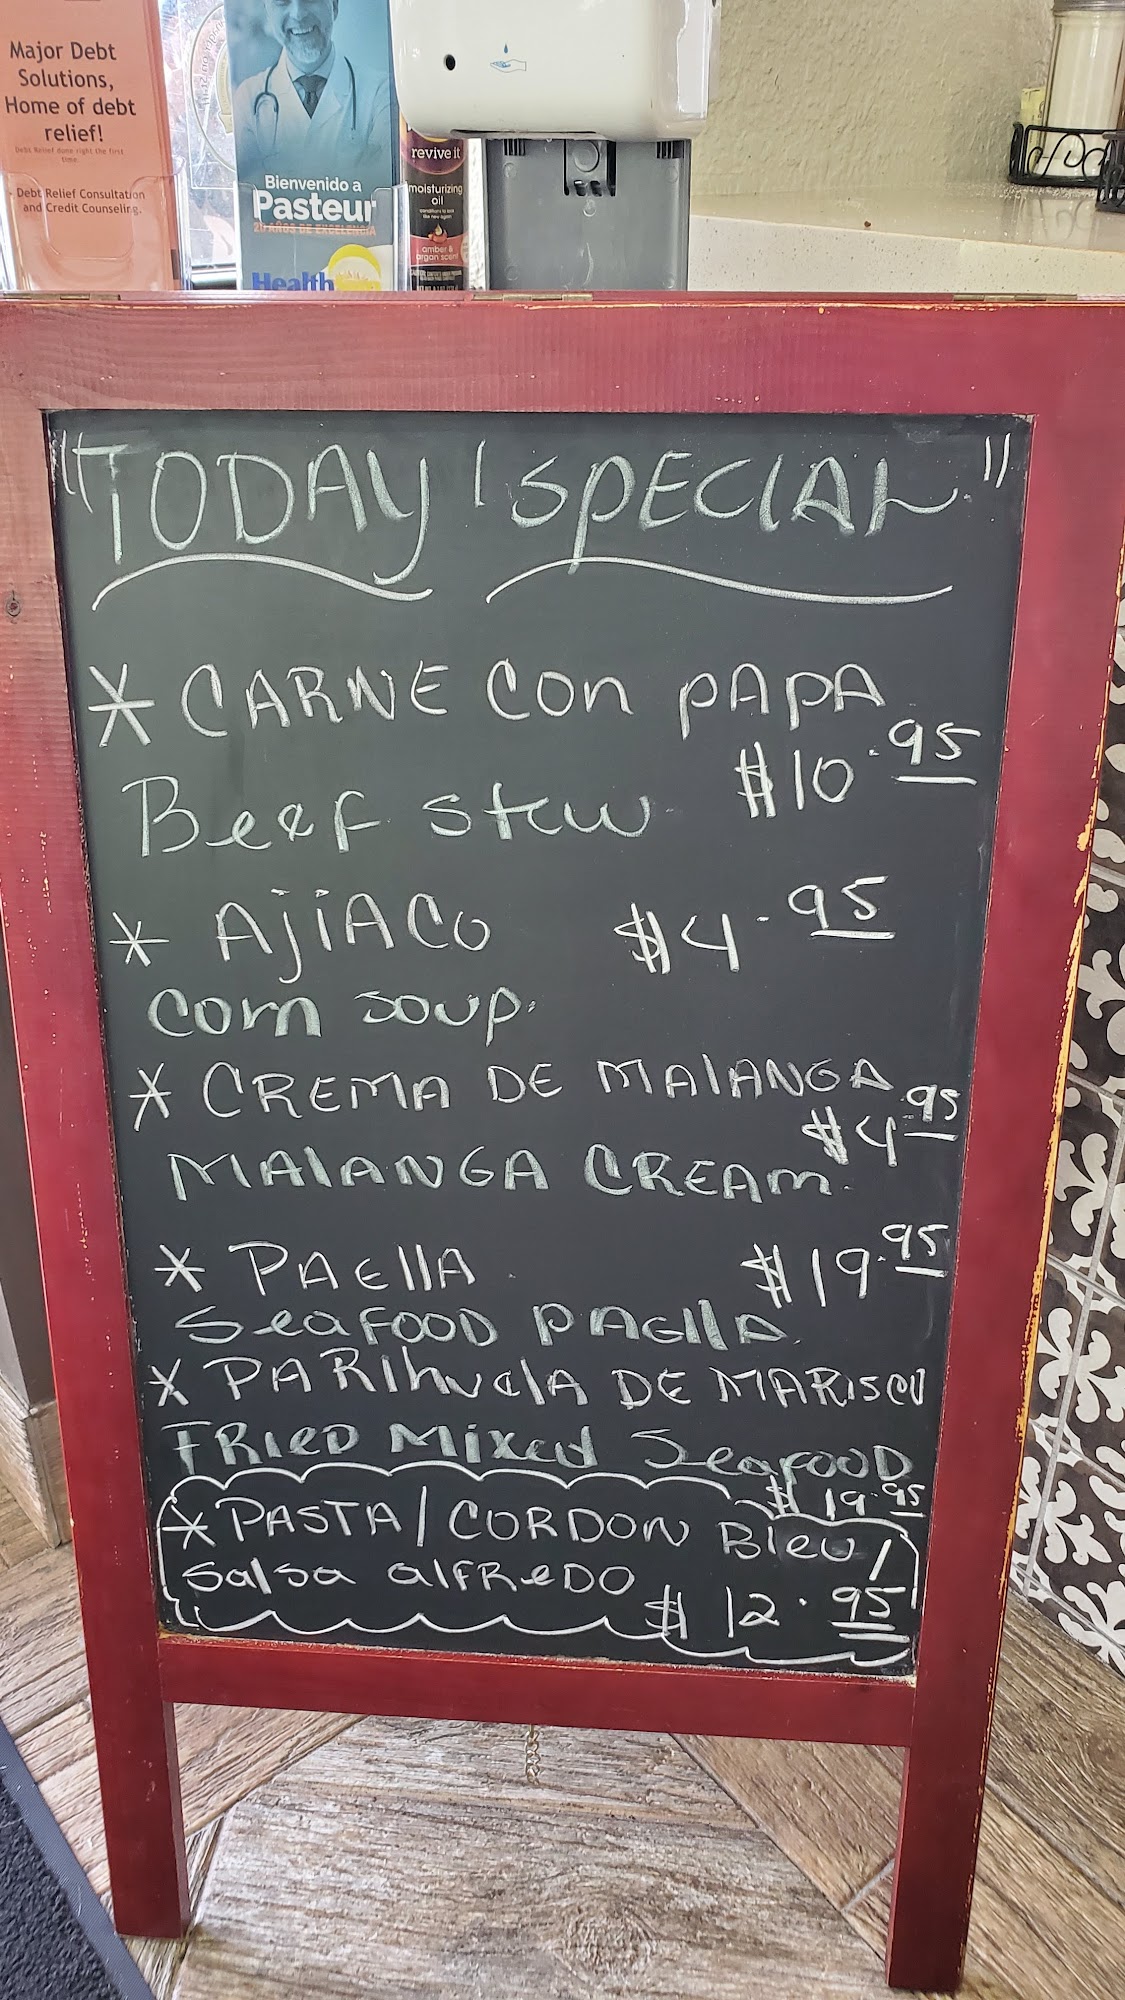 Major Debt
Solutions,
Home of debt
relief!
Debt Relief done right the first
time.
Debt Relief Consultation
and Credit Counseling.
Bienvenido a
Pasteur
20 AÑOS DE EXCELENCIA
Health
revive it
moisturizing
oil
amber &
argan scent
"TODAY'SPECIAL"
* CARNE CON PAPA
$10.95
Beef stew
* AJiACO $4.95
corn soup.
* CREMA DE MALANGA
$4.95
MALANGA CREAM.
* PAEllA $19.95
SeaFOOD PAEllA
* PARihuelA DE MARISCO
FRIED Mixed SeaFOOD
$19.95
* PASTA/CORDON Bleu/
Salsa alFReDO
$12.95